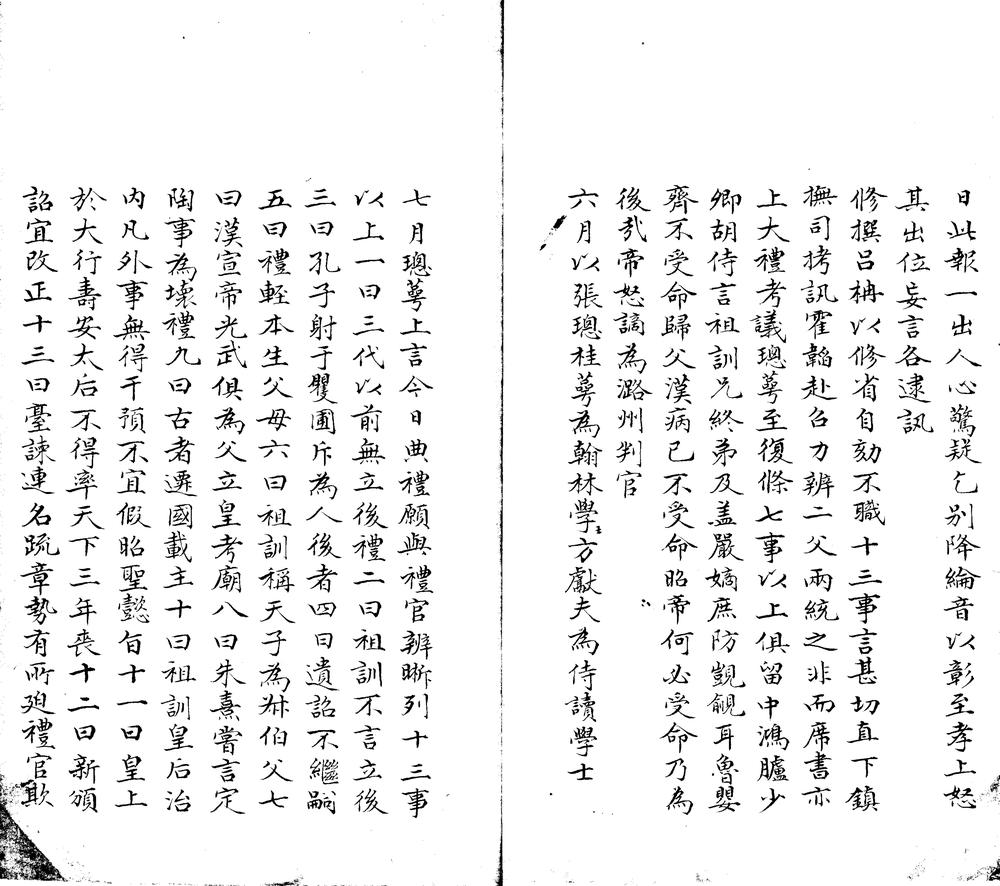 日此報一出人心驚疑乞别降綸音以彰至孝上怒
其出位妄言各逮訊
修撰吕柟以修省自劾不職十三事言甚切直下鎮
撫司拷訊霍韜赴召力辨二父兩統之非而席書亦
上大禮考議璁萼至復條七事以上俱留中鴻臚少
卿胡侍言祖訓兄終弟及盖嚴嫡庶防覬覦耳魯嬰
齊不受命歸父漢病已不受命昭帝何必受命乃為
後㢤帝怒謫為潞州判官
六月以張璁桂萼為翰林學士方獻夫為侍讀學士
七月璁萼上言今日典禮願與禮官辨晰列十三事
以上一曰三代以前無立後禮二曰祖訓不言立後
三曰孔子射于矍圃斥為人後者四曰遺詔不繼嗣
五曰禮輕本生父母六曰祖訓稱天子為叔伯父七
曰漢宣帝光武俱為父立皇考廟八曰朱熹嘗言定
陶事為壞禮九曰古者遷國載主十曰祖訓皇后治
内凡外事無得干預不宜假昭聖懿旨十一曰皇上
於大行壽安太后不得率天下三年丧十二曰新頒
詔宜改正十三曰臺諫連名疏章勢有所廹禮官欺